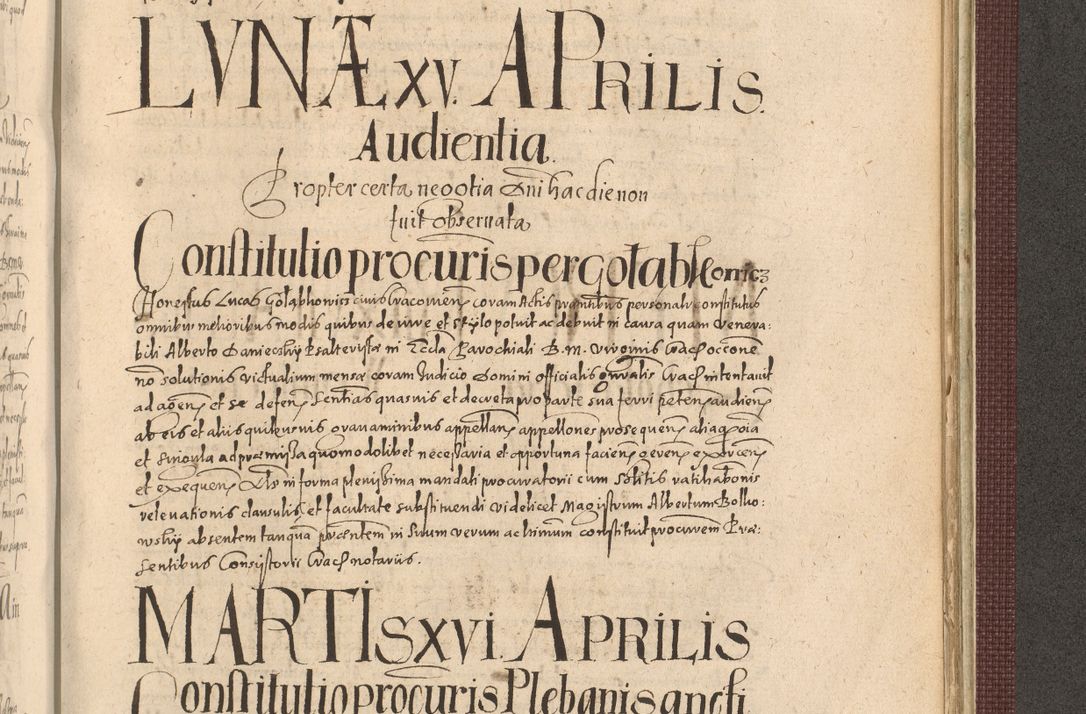 LVNÆ XV. APRILIS.
Audientia.
Propter certa negotia Dni hac die non
fuit observata
Constitutio procuris per Gołabkonicz
Honestus Lucas Gołąbkonicz civis Cracovien̄ coram Actis pn̄tibus personalr constitutus
omnibus melioribus modis quibus de iure et stylo potuit ac debuit in causa quam Venera:
bili Alberto Daniecskij Psalteristæ in Eccła Parochiali B. M. Virginis Crac̄ occone
nō solutionis victualium mensæ coram Iudicio Domini Officialis Gn̄ralis Crac̄ intentavit
ad agen̄ et se defen̄ Sentias quasvis et decreta pro parte sua ferri peten̄ audien̄
ab eis et aliis quibusvis gravaminibus appellan̄ appellones prosequen̄ aliaq̄ oīa
et singula ad præmissa quomodolibet necessaria et opportuna facien̄ geren̄ exercen̄
et exequen̄ Als in forma plenissima mandati procuratorii cum solitis ratihabonis
relevationis clausulis, et facultate substituendi videlicet Magistrum Albertum Bollo:
wskij absentem tanquā præsentem in suum verum ac ltimum constituit procurem Præ:
sentibus Consistorii Crac̄ notariis.
MARTIS XVI APRILIS
Constitutio procuris Plebanis sancti